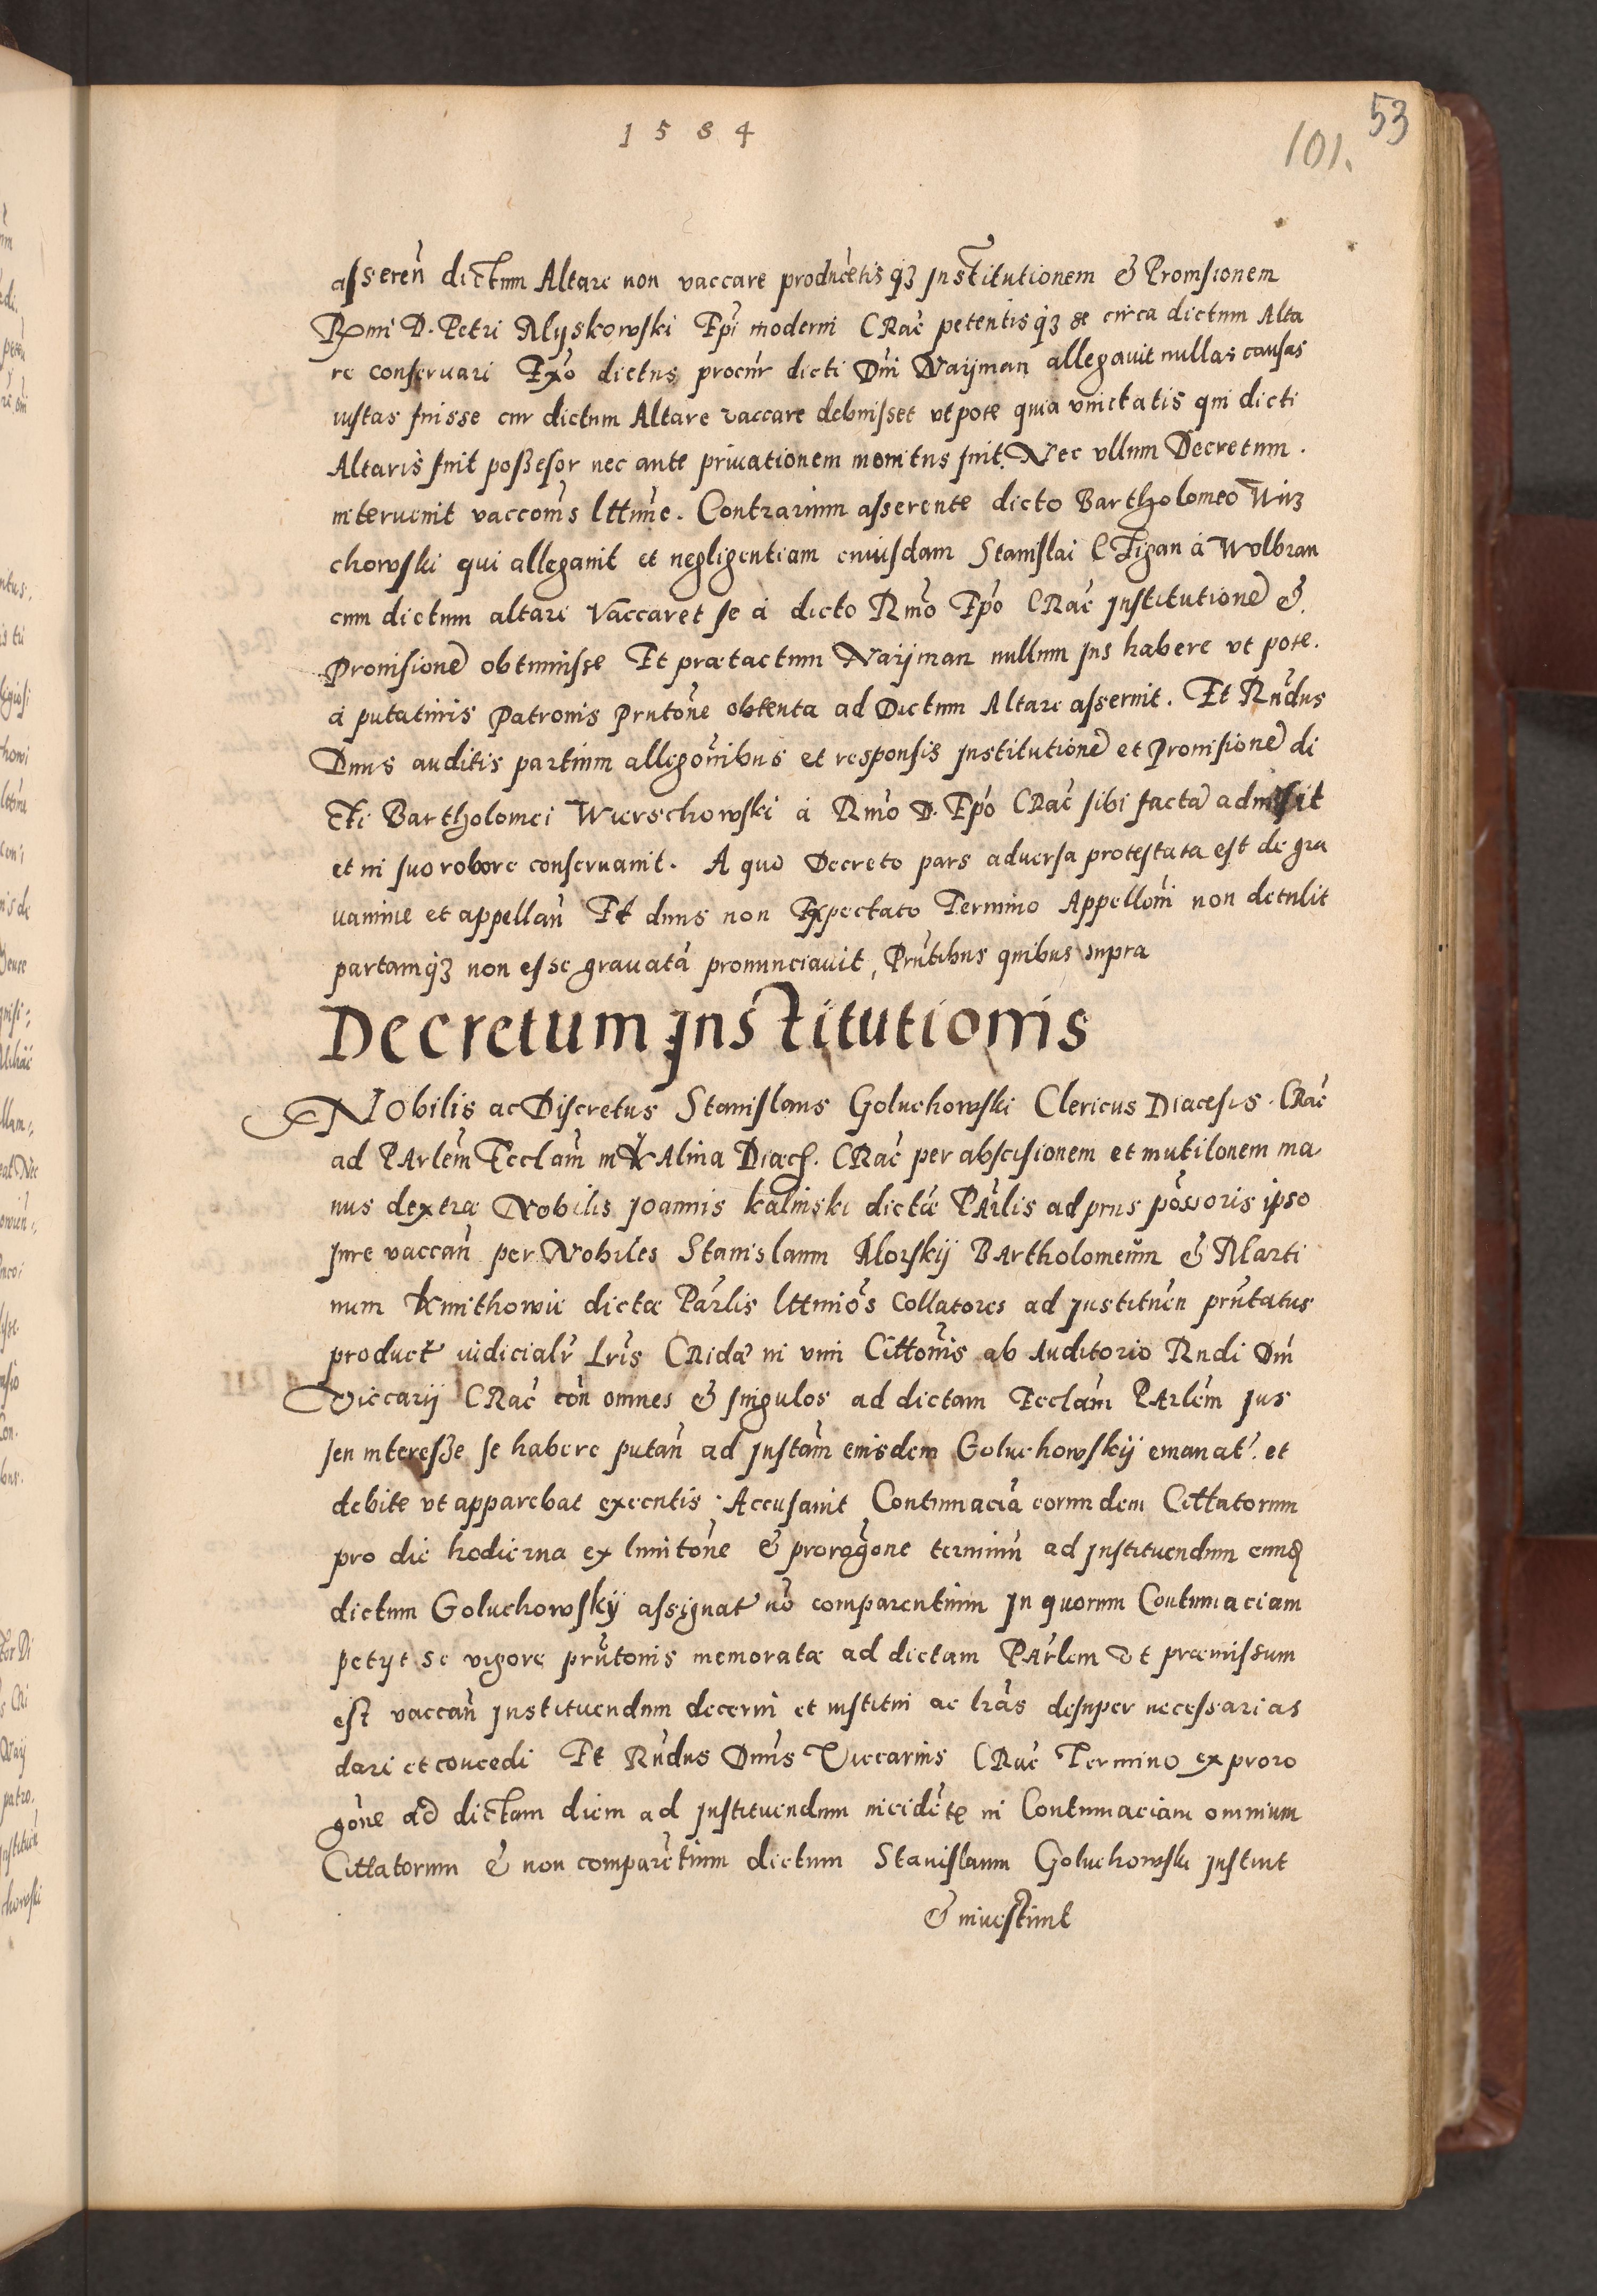 1584
53
101.
asseren̄ dictum Altare non vaccare producētis qȝ Institutionem & Prouisionem
Rmi D. Petri Myskowski Epi moderni CRac̄ petentis qȝ se circa dictum Alta
re conseruari Exo dictus procur dicti Dni Naijman allegauit nullas causas
iustas fuisse cur dictum Altare vaccare debuisset vtpote quia qui dicti
Altaris fuit possesor nec ante priuationem monitus fuit. Nec vllum Decretum.
interuenit vaccoīs lttime. Contrarium asserente dicto Bartholomeo Wirz
chowski qui allegauit et negligentiam cuiusdam Stanislai CTigan à Wolbran
cum dictum altare Vaccaret se à dicto Rmo Epo CRac̄ institutionē &
Prouisionē obtinuisse Et prætactum Naijman nullum ius habere vt pote.
à putatiuis Patronis Prntōne obtenta ad Dictum Altare asseruit. Et Rndus
Dnus auditis partium allegoīnibus et responsis institutionē et Prouisionē di
cti Bartholomei Wierschowski à Rmo D. Epo CRac̄ sibi factā admisit
et in suo robore conseruauit. A quo Decreto pars aduersa protestata est de gra
uamine et appellan̄ Et dnus non Expectato Termino Appellōni non detulit
partamqȝ non esse grauatā pronunciauit, Prntibus quibus supra
Decretum Institutionis
NObilis ac Discretus Stanislaus Goluchowski Clericus Diæcesis. CRac̄
ad PArlem Ecclam in KAlina Diæc̄. CRac̄ per abscisionem et mutilonem ma
nus dextræ Nobilis Joannis kalinski dictæ PArlis ad prns pōssoris ipso
Jure vaccan̄ per Nobiles Stanislaum Morskij BArtholomeum & Marti
num Kmithowie dictæ Pārlis lttimōs Collatores ad instituen̄ prntatus
product̄ iudicialr̄ Lrīs CRidæ in vim Cittonis ab Auditorio Rndi Dni
Viccarij CRac̄ con̄ omnes & singulos ad dictam Ecclam PArlem Jus
seu interesse se habere putan̄ ad instam̄ eiusdem Goluchowskij emanat̄. et
debite vt apparebat executis. Accusauit Contumaciā eorumdem Cittatorum
pro die hodierna ex limitōne & prorogōne terminū ad instituendum eumq
dictum Goluchowskij assignat̄ nō comparentium In quorum Contumaciam
petijt se vigore prntonis memoratæ ad dictam PArlem vt præmissum
est vaccan̄ Instituendum decerni et institui ac lrās desuper necessarias
dari et concedi Et Rndus Dnus Viccarius CRac̄ Termino ex proro
gōne ad dictam diem ad instituendum incidēte in Contumaciam omnium
Cittatorum & non comparētium dictum Stanislaum Goluchowski instiut
& inuestiuit